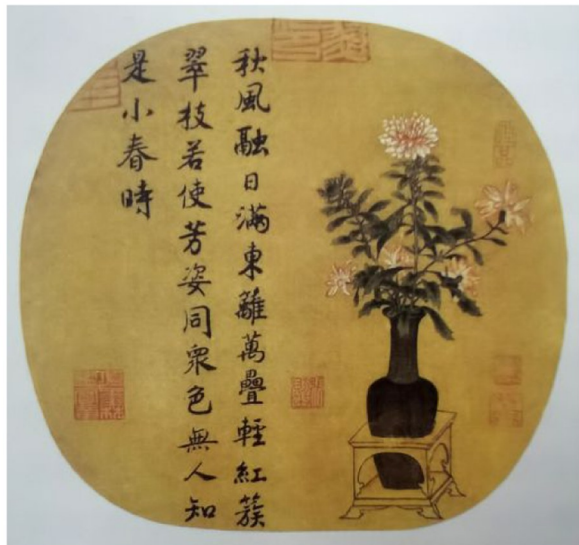 秋風融日滿東籬萬疊輕紅簇
翠枝若使芳姿同衆色無人知
是小春時